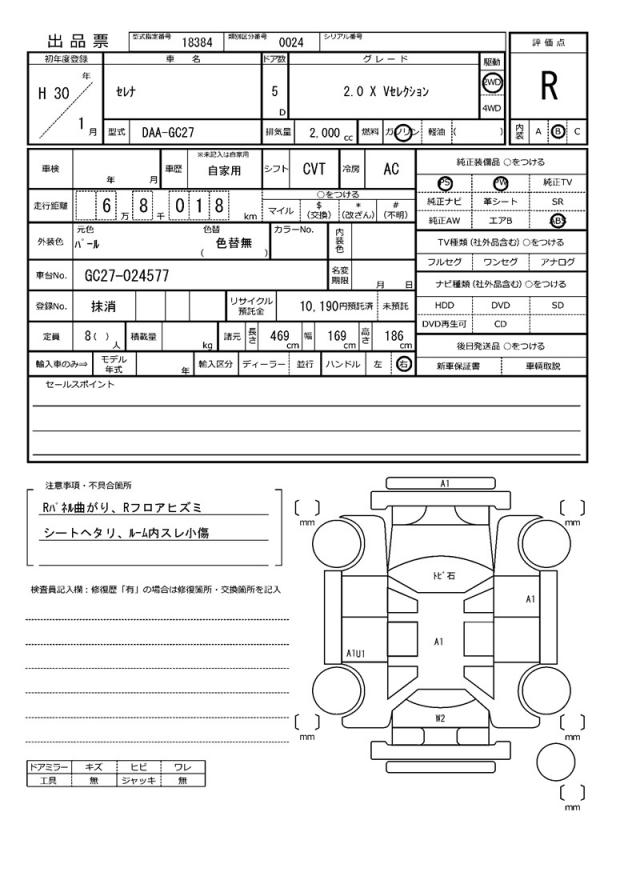 出品票 型式指定番号 18384 類別区分番号 0024 シリアル番号
評価点
R
初年度登録 車名 ドア数 グレード 駆動
H 30 年 1 月
セレナ
5 D
2.0 X Vセレクション
2WD
4WD
型式 DAA-GC27 排気量 2,000 cc 燃料 ガソリン 軽油 ( )
内装 A B C
車検 年 月 車歴 ※未記入は自家用 自家用 シフト CVT 冷房 AC
走行距離 6 万 8 千 0 1 8 km
○をつける
マイル $(交換) *(改ざん) #(不明)
外装色 元色 パール 色替 色替無 ( ) カラーNo. 内装色
車台No. GC27-024577 名変期限 月 日
登録No. 抹消 リサイクル預託金 10,190円預託済 未預託
定員 8( ) 人 積載量 kg 諸元 長さ 469 cm 幅 169 cm 高さ 186 cm
輸入車のみ⇒ モデル年式 年 輸入区分 ディーラー 並行 ハンドル 左 右
純正装備品 ○をつける
PS PW 純正TV
純正ナビ 革シート SR
純正AW エアB ABS
TV種類 (社外品含む) ○をつける
フルセグ ワンセグ アナログ
ナビ種類 (社外品含む) ○をつける
HDD DVD SD
DVD再生可 CD
後日発送品 ○をつける
新車保証書 車輌取説
セールスポイント
注意事項・不具合箇所
Rパネル曲がり、Rフロアヒズミ
シートヘタリ、ルーム内スレ小傷
検査員記入欄：修復歴「有」の場合は修復箇所・交換箇所を記入
ドアミラー キズ ヒビ ワレ
工具 無 ジャッキ 無
A1
mm
mm
トビ石
A1
A1
A1U1
W2
mm
mm
mm